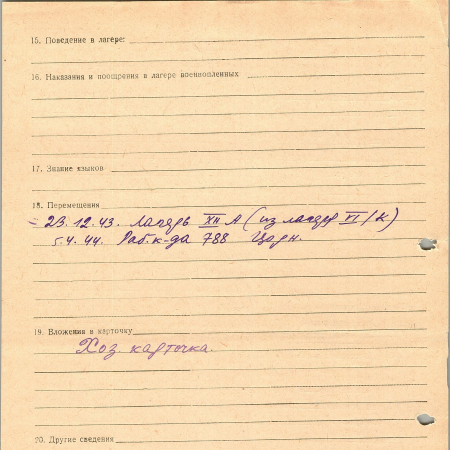 15. Поведение в лагере:
16. Наказания и поощрения в лагере военнопленных
17. Знание языков
18. Перемещения
23.12.43. лагерь XII А (из лагеря VI/К)
5.4.44. Раб. к-да 788 Цорн.
19. Вложения в карточку
Хоз. карточка.
20. Другие сведения